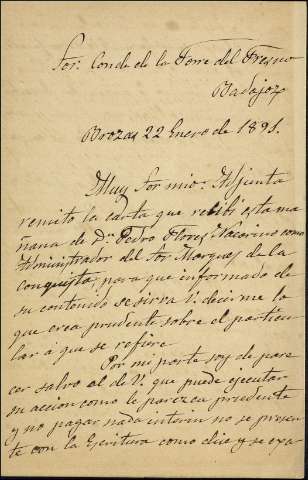 Sor. Conde de la Torre del Fresno
Badajoz
Brozas 22 Enero de 1891.
Muy Sor mio: Adjunta
remito la carta que recibi esta ma
ñana de Dn Pedro Flores Nacarino como
Administrador del Sor Marques de la
conquista, para que informado de
su contenido se sirva V. decirme lo
que crea prudente sobre el particu
lar á que se refiere
Por mi parte soy de pare
cer salvo al de V. que puede ejecutar
su accion como le parezca prudente
y no pagar nada interin no se presen
te con la Escritura como dice y se exa